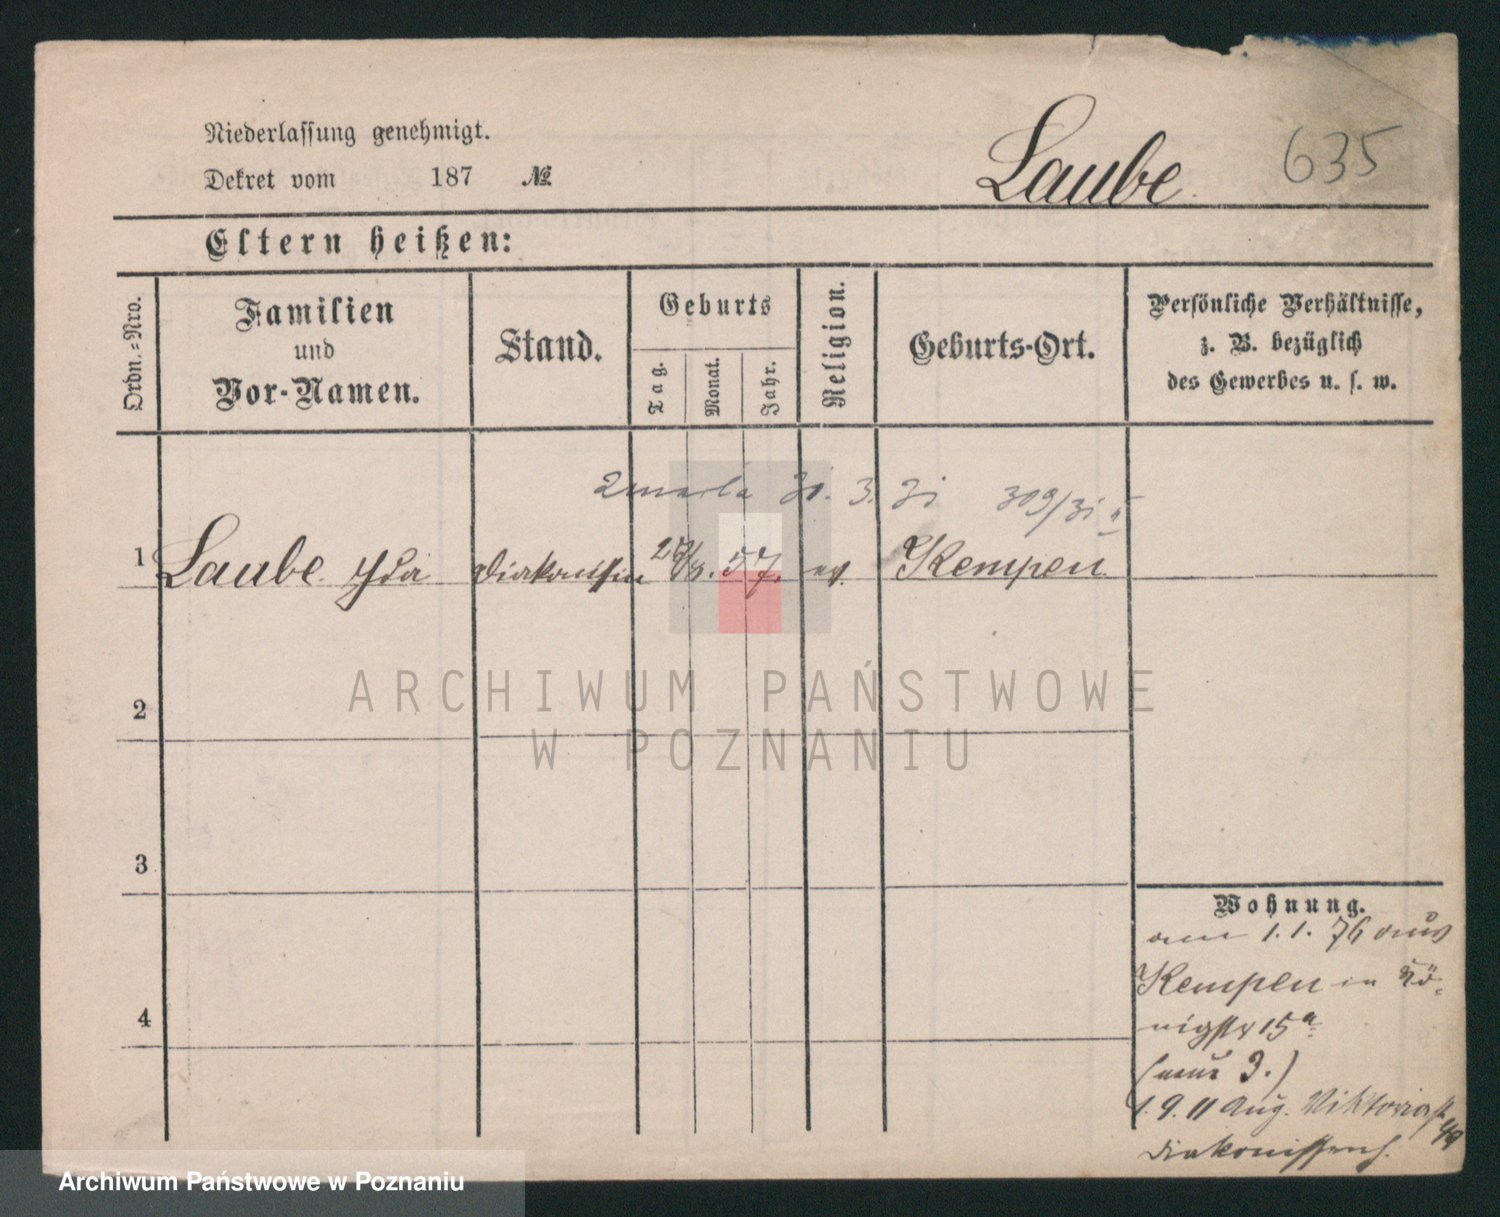 Niederlassung genehmigt.
Dekret vom 187 №
Laube 635
Eltern heißen:
Ordn.-Nro.
Familien
und
Vor-Namen.
Stand.
Geburts
Tag.
Monat.
Jahr.
Religion.
Geburts-Ort.
Persönliche Verhältnisse,
z. B. bezüglich
des Gewerbes u. s. w.
Zmarła 31. 3. 31 309/31
1 Laube Ida Diakonissin 57. ev. Kempen
ARCHIWUM PAŃSTWOWE
W POZNANIU
2
3
4
Wohnung.
am 1.1. 76 aus
Kempen in Kö-
nigstr 15a
(neue 3.)
1.9.11 Aug. Viktoriastr
Diakonissenh.
Archiwum Państwowe w Poznaniu